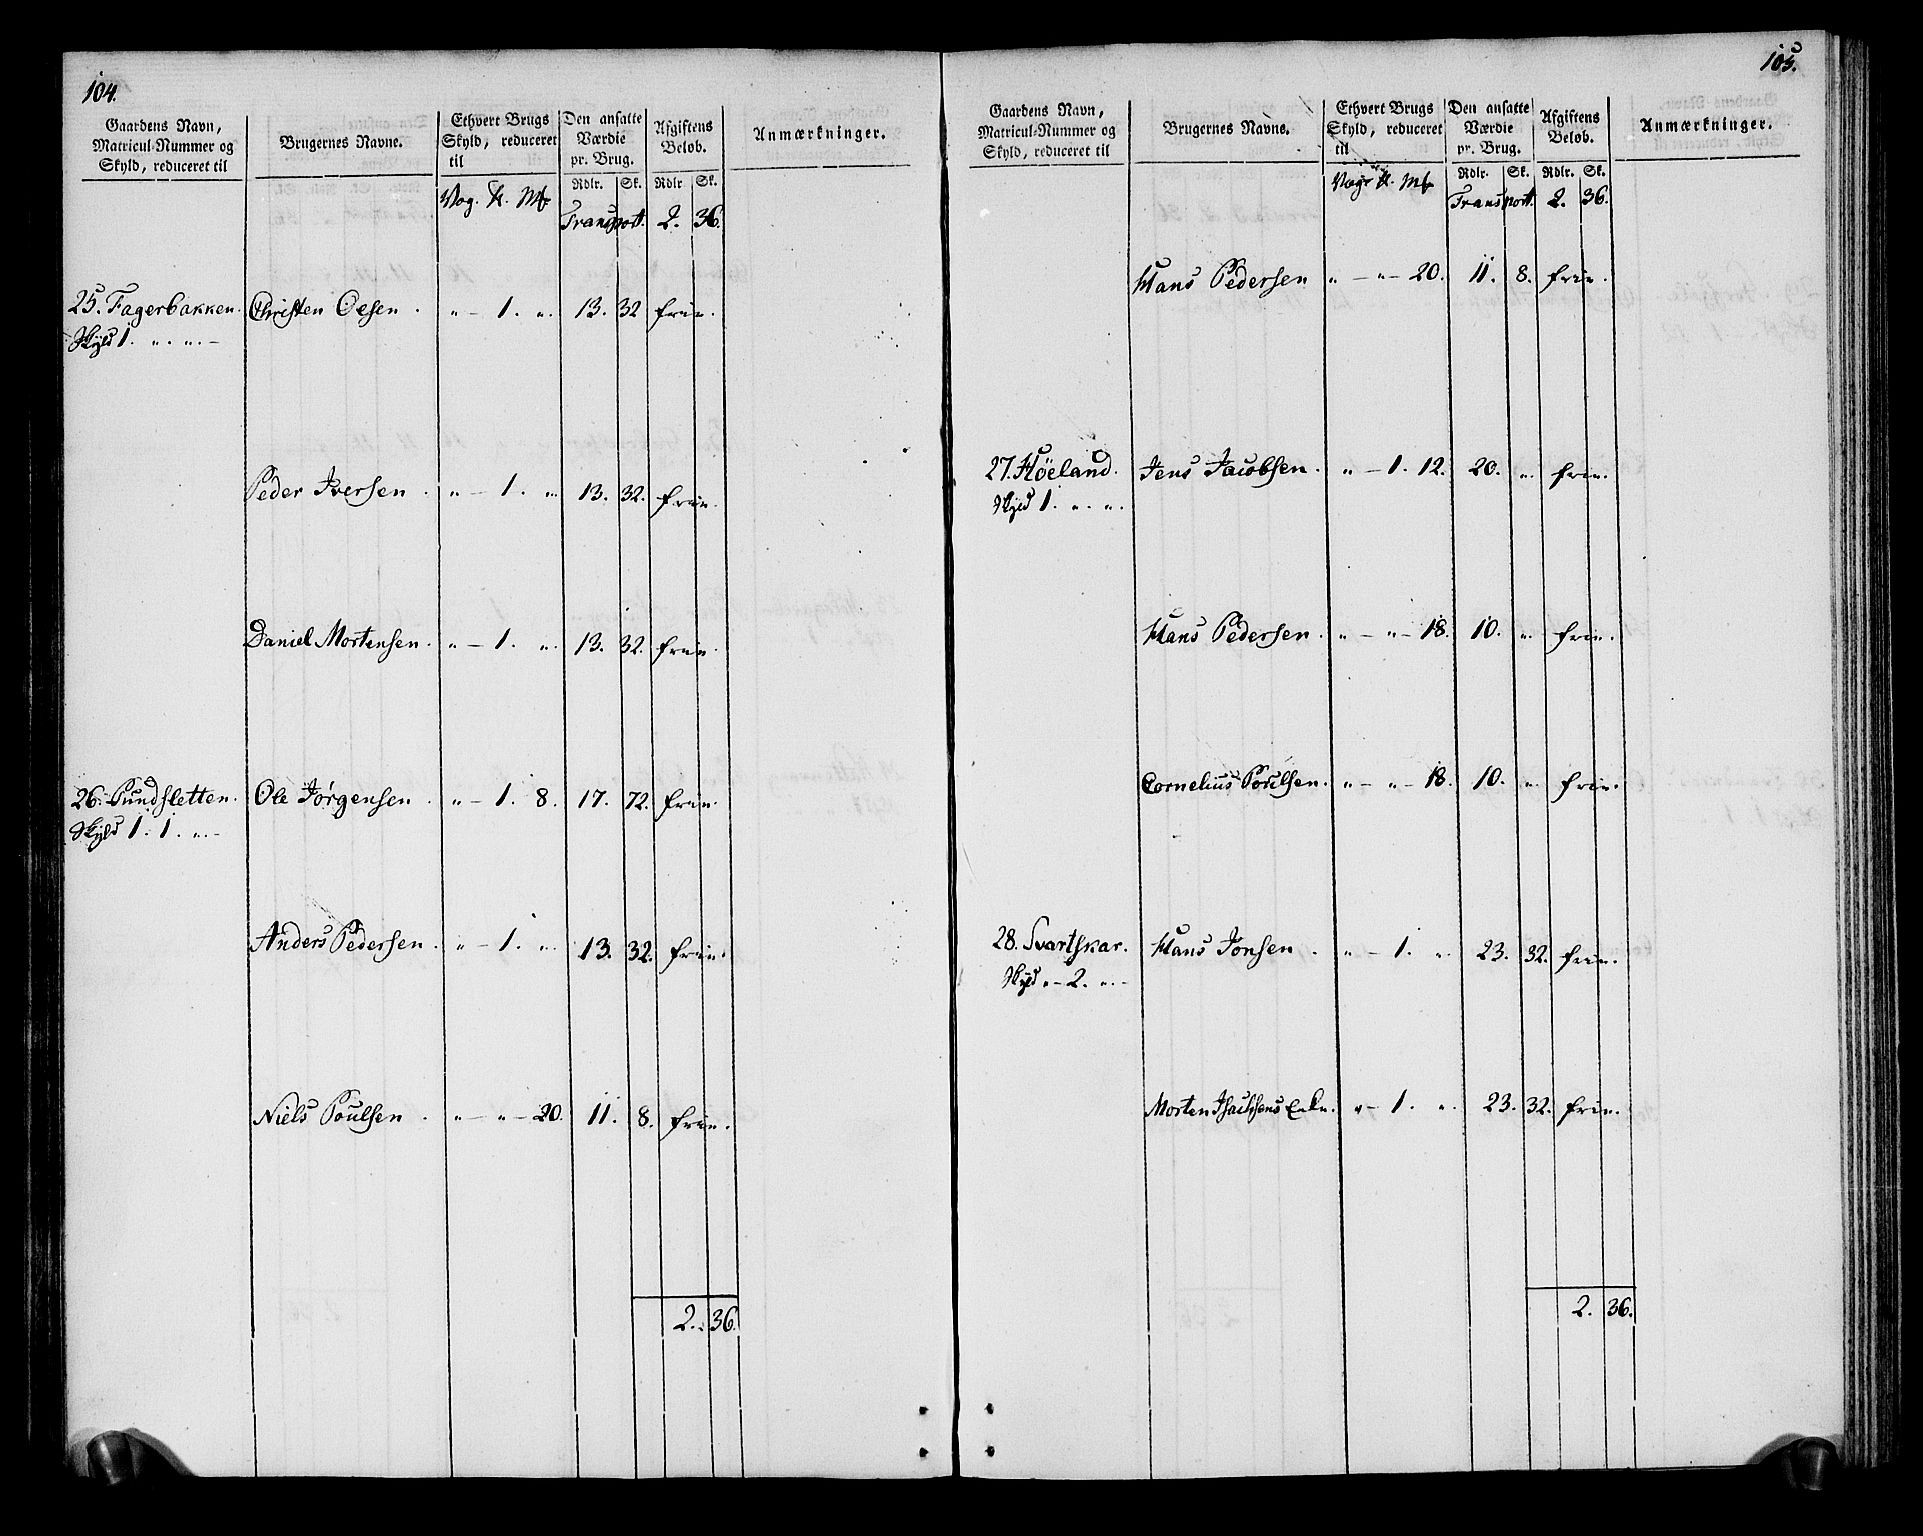 104.
Gaardens Navn, Matricul-Nummer og Skyld, reduceret til
Brugernes Navne.
Ethvert Brugs Skyld, reduceret til
Den ansatte Værdie pr. Brug.
Afgiftens Beløb.
Anmærkninger.
Rdlr. Sk. Rdlr Sk.
Vog. Mk
Transport. 2. 36.
25. Fagerbakken. Christen Olsen. " – 1. ". 13. 32 frie.
Skyld 1. ". ". –
Peder Iversen. " – 1. ". 13. 32. frie.
Daniel Mortensen. " – 1. ". 13. 32. frie.
26. Pundsletten. Ole Jørgensen. " – 1. 8. 17. 72. frie.
Skyld 1. 1. ". –
Anders Pedersen. " – 1. ". 13. 32. frie.
Niels Poulsen. " – " – 20. 11. 8. frie.
2. 36.
105.
Gaardens Navn, Matricul-Nummer og Skyld, reduceret til
Brugernes Navne.
Ethvert Brugs Skyld, reduceret til
Den ansatte Værdie pr. Brug.
Afgiftens Beløb.
Anmærkninger.
Rdlr. Sk. Rdlr. Sk.
Voge Mk
Transport. 2. 36.
Hans Pedersen " – " – 20. 11. 8. frie.
27. Höeland. Jens Jacobsen. " – 1. 12. 20. ". frie.
Skyld 1. ". ".
Hans Pedersen. " – " – 18. 10. ". frie.
Cornelius Poulsen. " – " – 18. 10. ". frie.
28. Svartskar. Hans Jonsen. " – 1. ". 23. 32. frie.
Skyld " – 2. ". –
Morten Isachsens Enke. " – 1. ". 23. 32. frie.
2. 36.